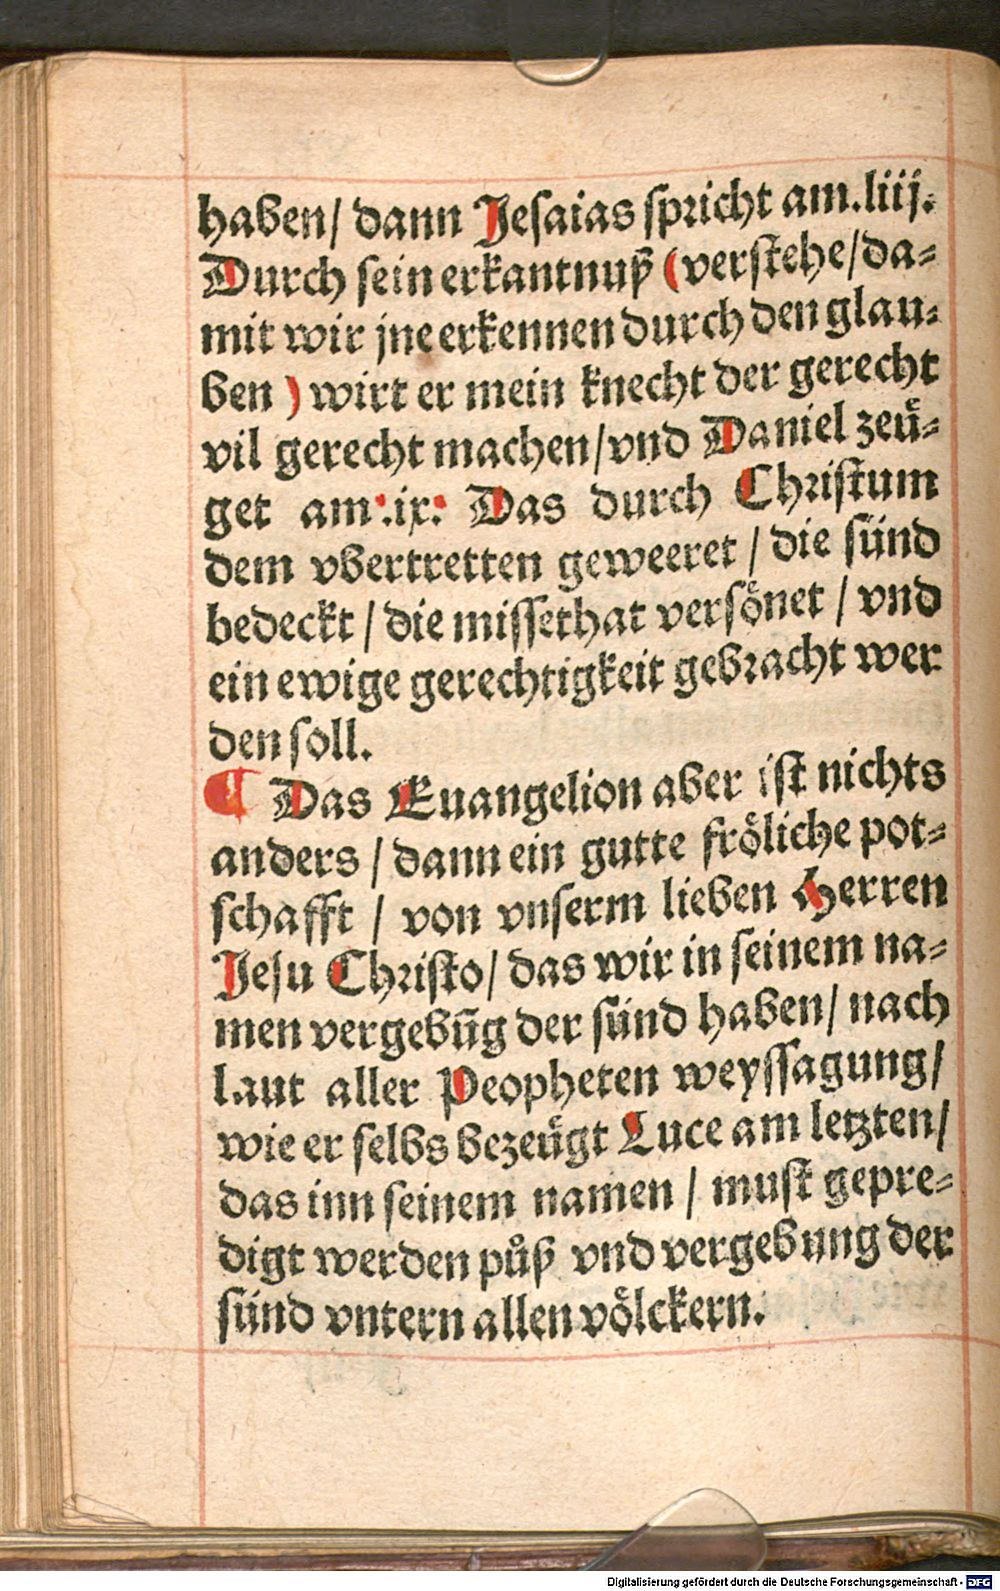 haben/ dann Jesaias spricht am.liij.
Durch sein erkantnuß (verstehe/da-
mit wir jne erkennen durch den glau-
ben ) wirt er mein knecht der gerecht
vil gerecht machen/vnd Daniel zeuͤ-
get am.ix. Das durch Christum
dem vbertretten geweeret / die sünd
bedeckt / die missethat versoͤnet / vnd
ein ewige gerechtigkeit gebracht wer
den soll.
¶ Das Euangelion aber ist nichts
anders / dann ein gutte froͤliche pot-
schafft / von vnserm lieben Herren
Jesu Christo/ das wir in seinem na-
men vergebūg der sünd haben/ nach
laut aller Peopheten weyssagung/
wie er selbs bezeuͤgt Luce am letzten/
das inn seinem namen / must gepre-
digt werden puͦß vnd vergebung der
sünd vntern allen voͤlckern.
Digitalisierung gefördert durch die Deutsche Forschungsgemeinschaft - DFG